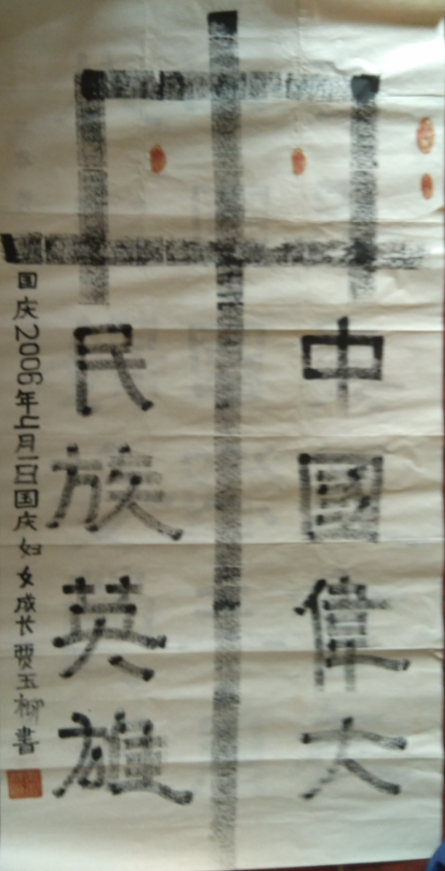 中
中國偉大
民族英雄
国庆2006年4月1日国庆妇女成长贾玉柳書